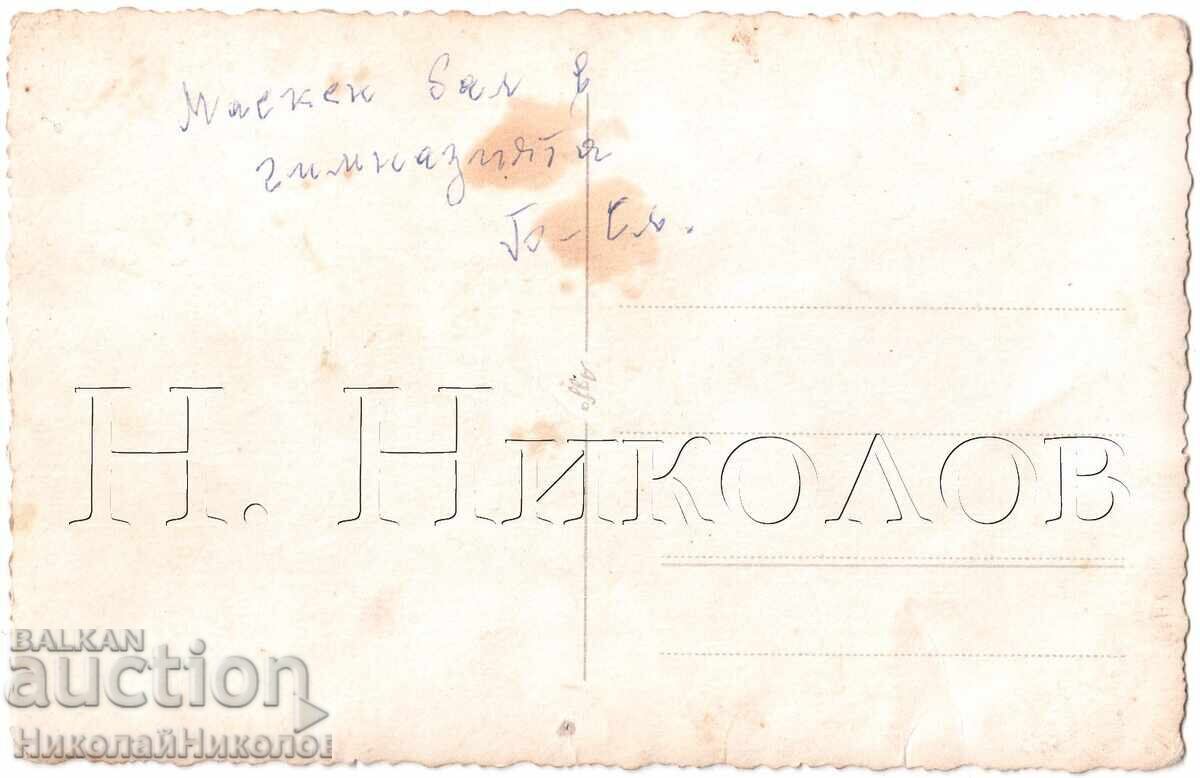 Маскен бал в
гимназията
Н. Николов
BALKAN
auction
НиколайНиколов